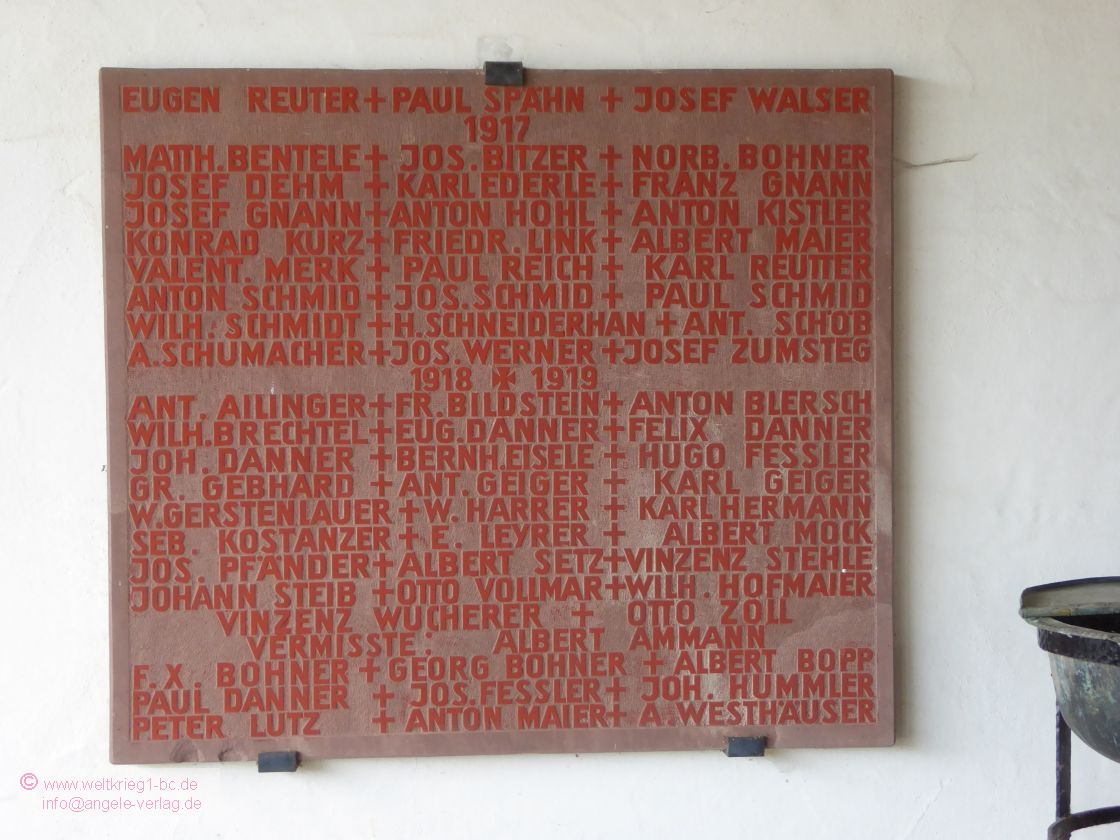 EUGEN REUTER + PAUL SPÄHN + JOSEF WALSER
1917
MATTH. BENTELE + JOS. BITZER + NORB. BOHNER
JOSEF DEHM + KARL EDERLE + FRANZ GNANN
JOSEF GNANN + ANTON HOHL + ANTON KISTLER
KONRAD KURZ + FRIEDR. LINK + ALBERT MAIER
VALENT. MERK + PAUL REICH + KARL REUTTER
ANTON SCHMID + JOS. SCHMID + PAUL SCHMID
WILH. SCHMIDT + H. SCHNEIDERHAN + ANT. SCHÖB
A. SCHUMACHER + JOS. WERNER + JOSEF ZUMSTEG
1918 ✠ 1919
ANT. AILINGER + FR. BILDSTEIN + ANTON BLERSCH
WILH. BRECHTEL + EUG. DANNER + FELIX DANNER
JOH. DANNER + BERNH. EISELE + HUGO FESSLER
GR. GEBHARD + ANT. GEIGER + KARL GEIGER
W. GERSTENLAUER + W. HARRER + KARL HERMANN
SEB. KOSTANZER + E. LEYRER + ALBERT MOCK
JOS. PFÄNDER + ALBERT SETZ + VINZENZ STEHLE
JOHANN STEIB + OTTO VOLLMAR + WILH. HOFMAIER
VINZENZ WUCHERER + OTTO ZOLL
VERMISSTE: ALBERT AMMANN
F. X. BOHNER + GEORG BOHNER + ALBERT BOPP
PAUL DANNER + JOS. FESSLER + JOH. HUMMLER
PETER LUTZ + ANTON MAIER + A WESTHÄUSER
© www.weltkrieg1-bc.de
info@angele-verlag.de